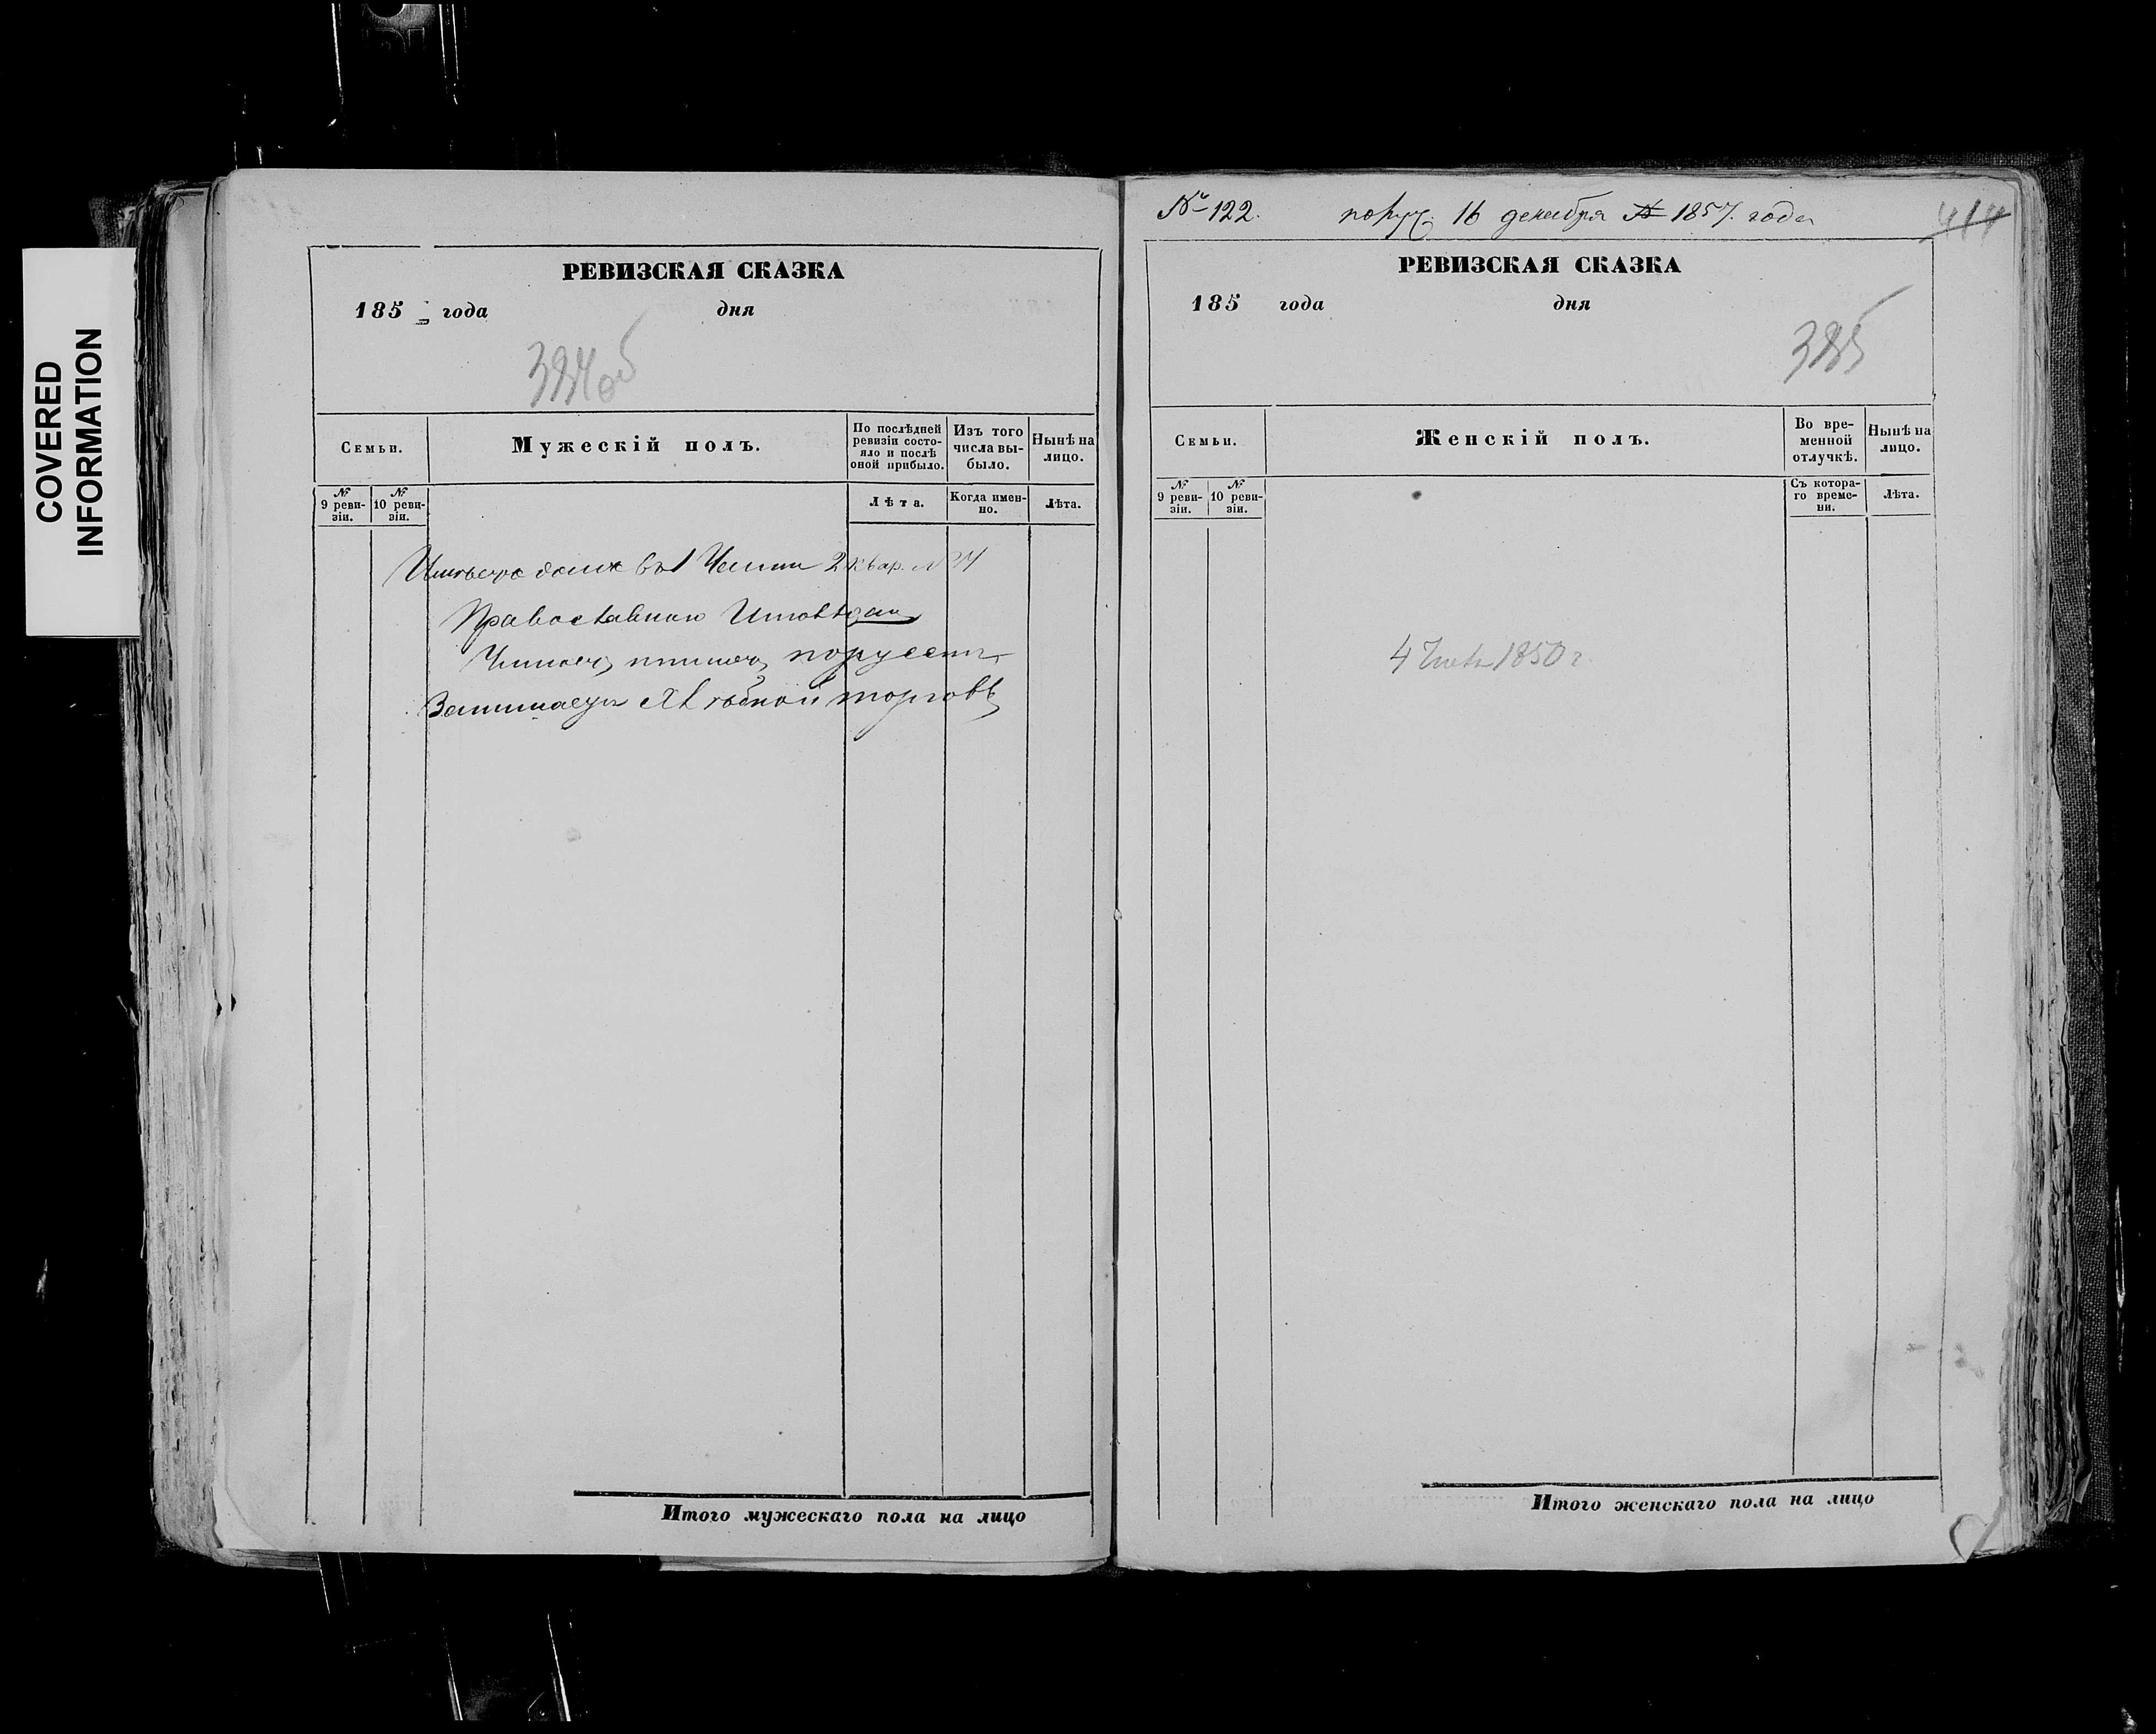 COVERED
INFORMATION
РЕВИЗСКАЯ СКАЗКА
185 года дня
384об
Семьи.
Мужескій полъ.
По послѣдней
ревизіи состо-
яло и послѣ
оной прибыло.
Изъ того
числа вы-
было.
Нынѣ на
лицо.
№
9 реви-
зіи.
№
10 реви-
зіи.
Лѣта.
Когда имен-
но.
Лѣта.
Имѣетъ домъ въ 1 Части 2 квар. №
Православнаго Исповѣдан
Читаетъ, пишетъ, поруски
Занимается хлѣбной торговл
Итого мужескаго пола на лицо
№ 122. получ. 16 декабря 1857. года
414
РЕВИЗСКАЯ СКАЗКА
185 года дня
385
Семьи.
Женскій полъ.
Во вре-
менной
отлучкѣ.
Нынѣ на
лицо.
№
9 реви-
зіи.
№
10 реви-
зіи.
Съ котора-
го време-
ни.
Лѣта.
4 1850 г.
Итого женскаго пола на лицо